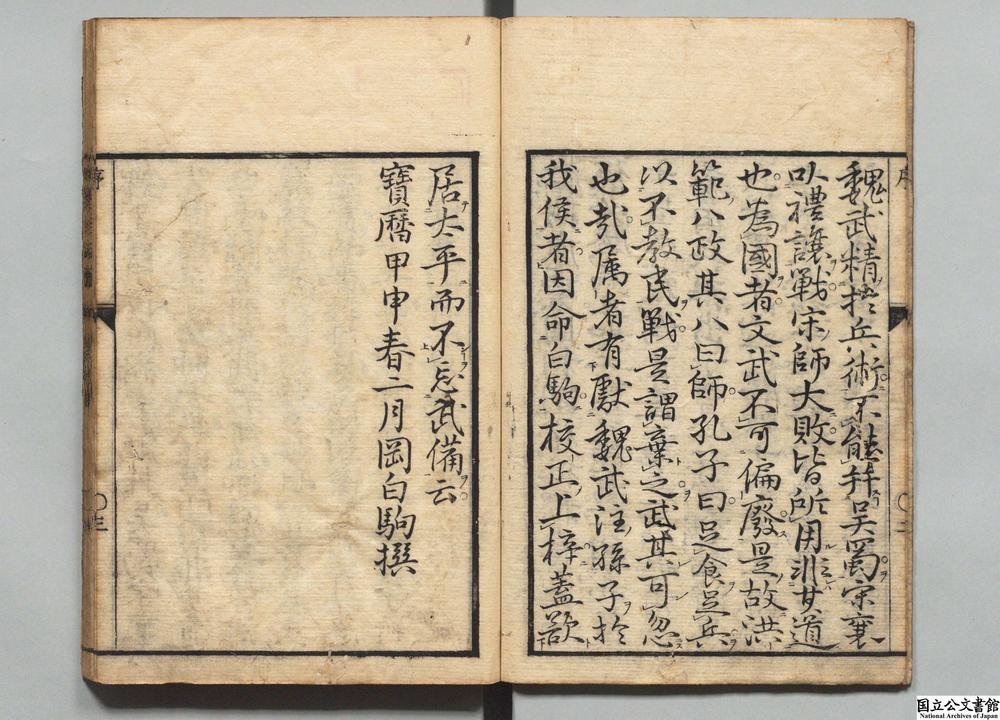 魏武精於兵術不能并吳蜀宋襄
以禮讓戰宋師大敗皆所用非其道
也為國者文武不可偏廢是故洪
範八政其八曰師孔子曰足食足兵
以不教民戰是謂棄之武其可忽
也哉属者有獻魏武注孫子於
我侯者因命白駒校正上梓蓋欲
居太平而不忘武備云
寶曆甲申春二月岡白駒撰
序
序
二
三
国立公文書館
National Archives of Japan